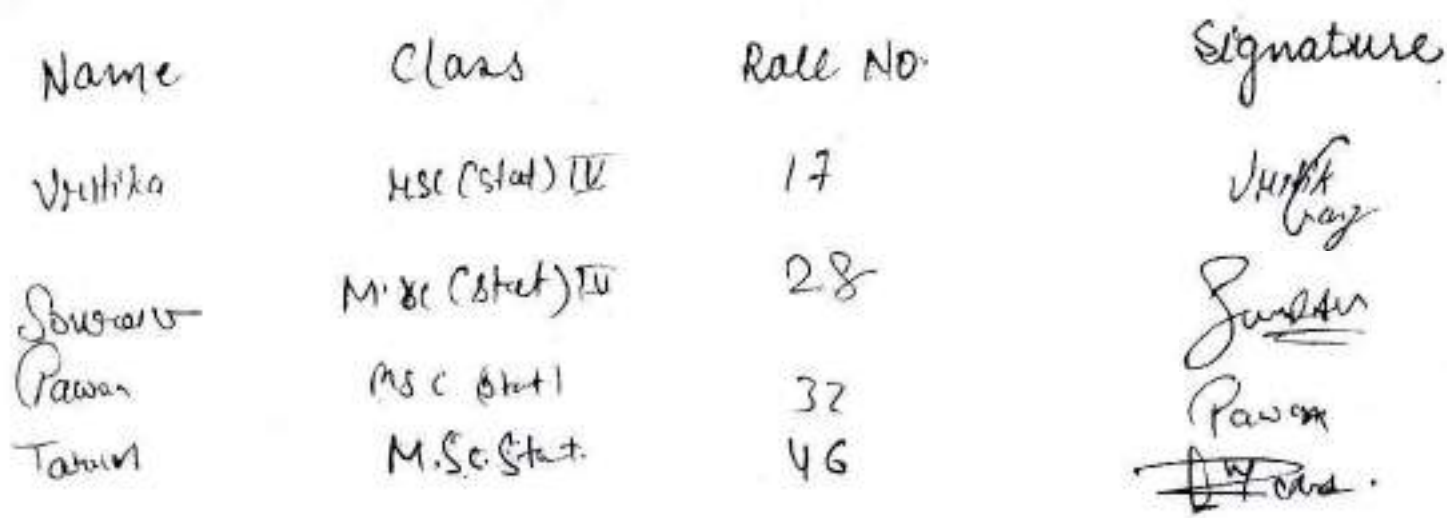 Name Class Roll No. Signature
Vrittika MSC (Stat) IV 17
Sourav M.Sc (Stat) IV 28 Sourav
Pawan MSC Stat 32 Pawan
Tarun M.Sc. Stat. 46